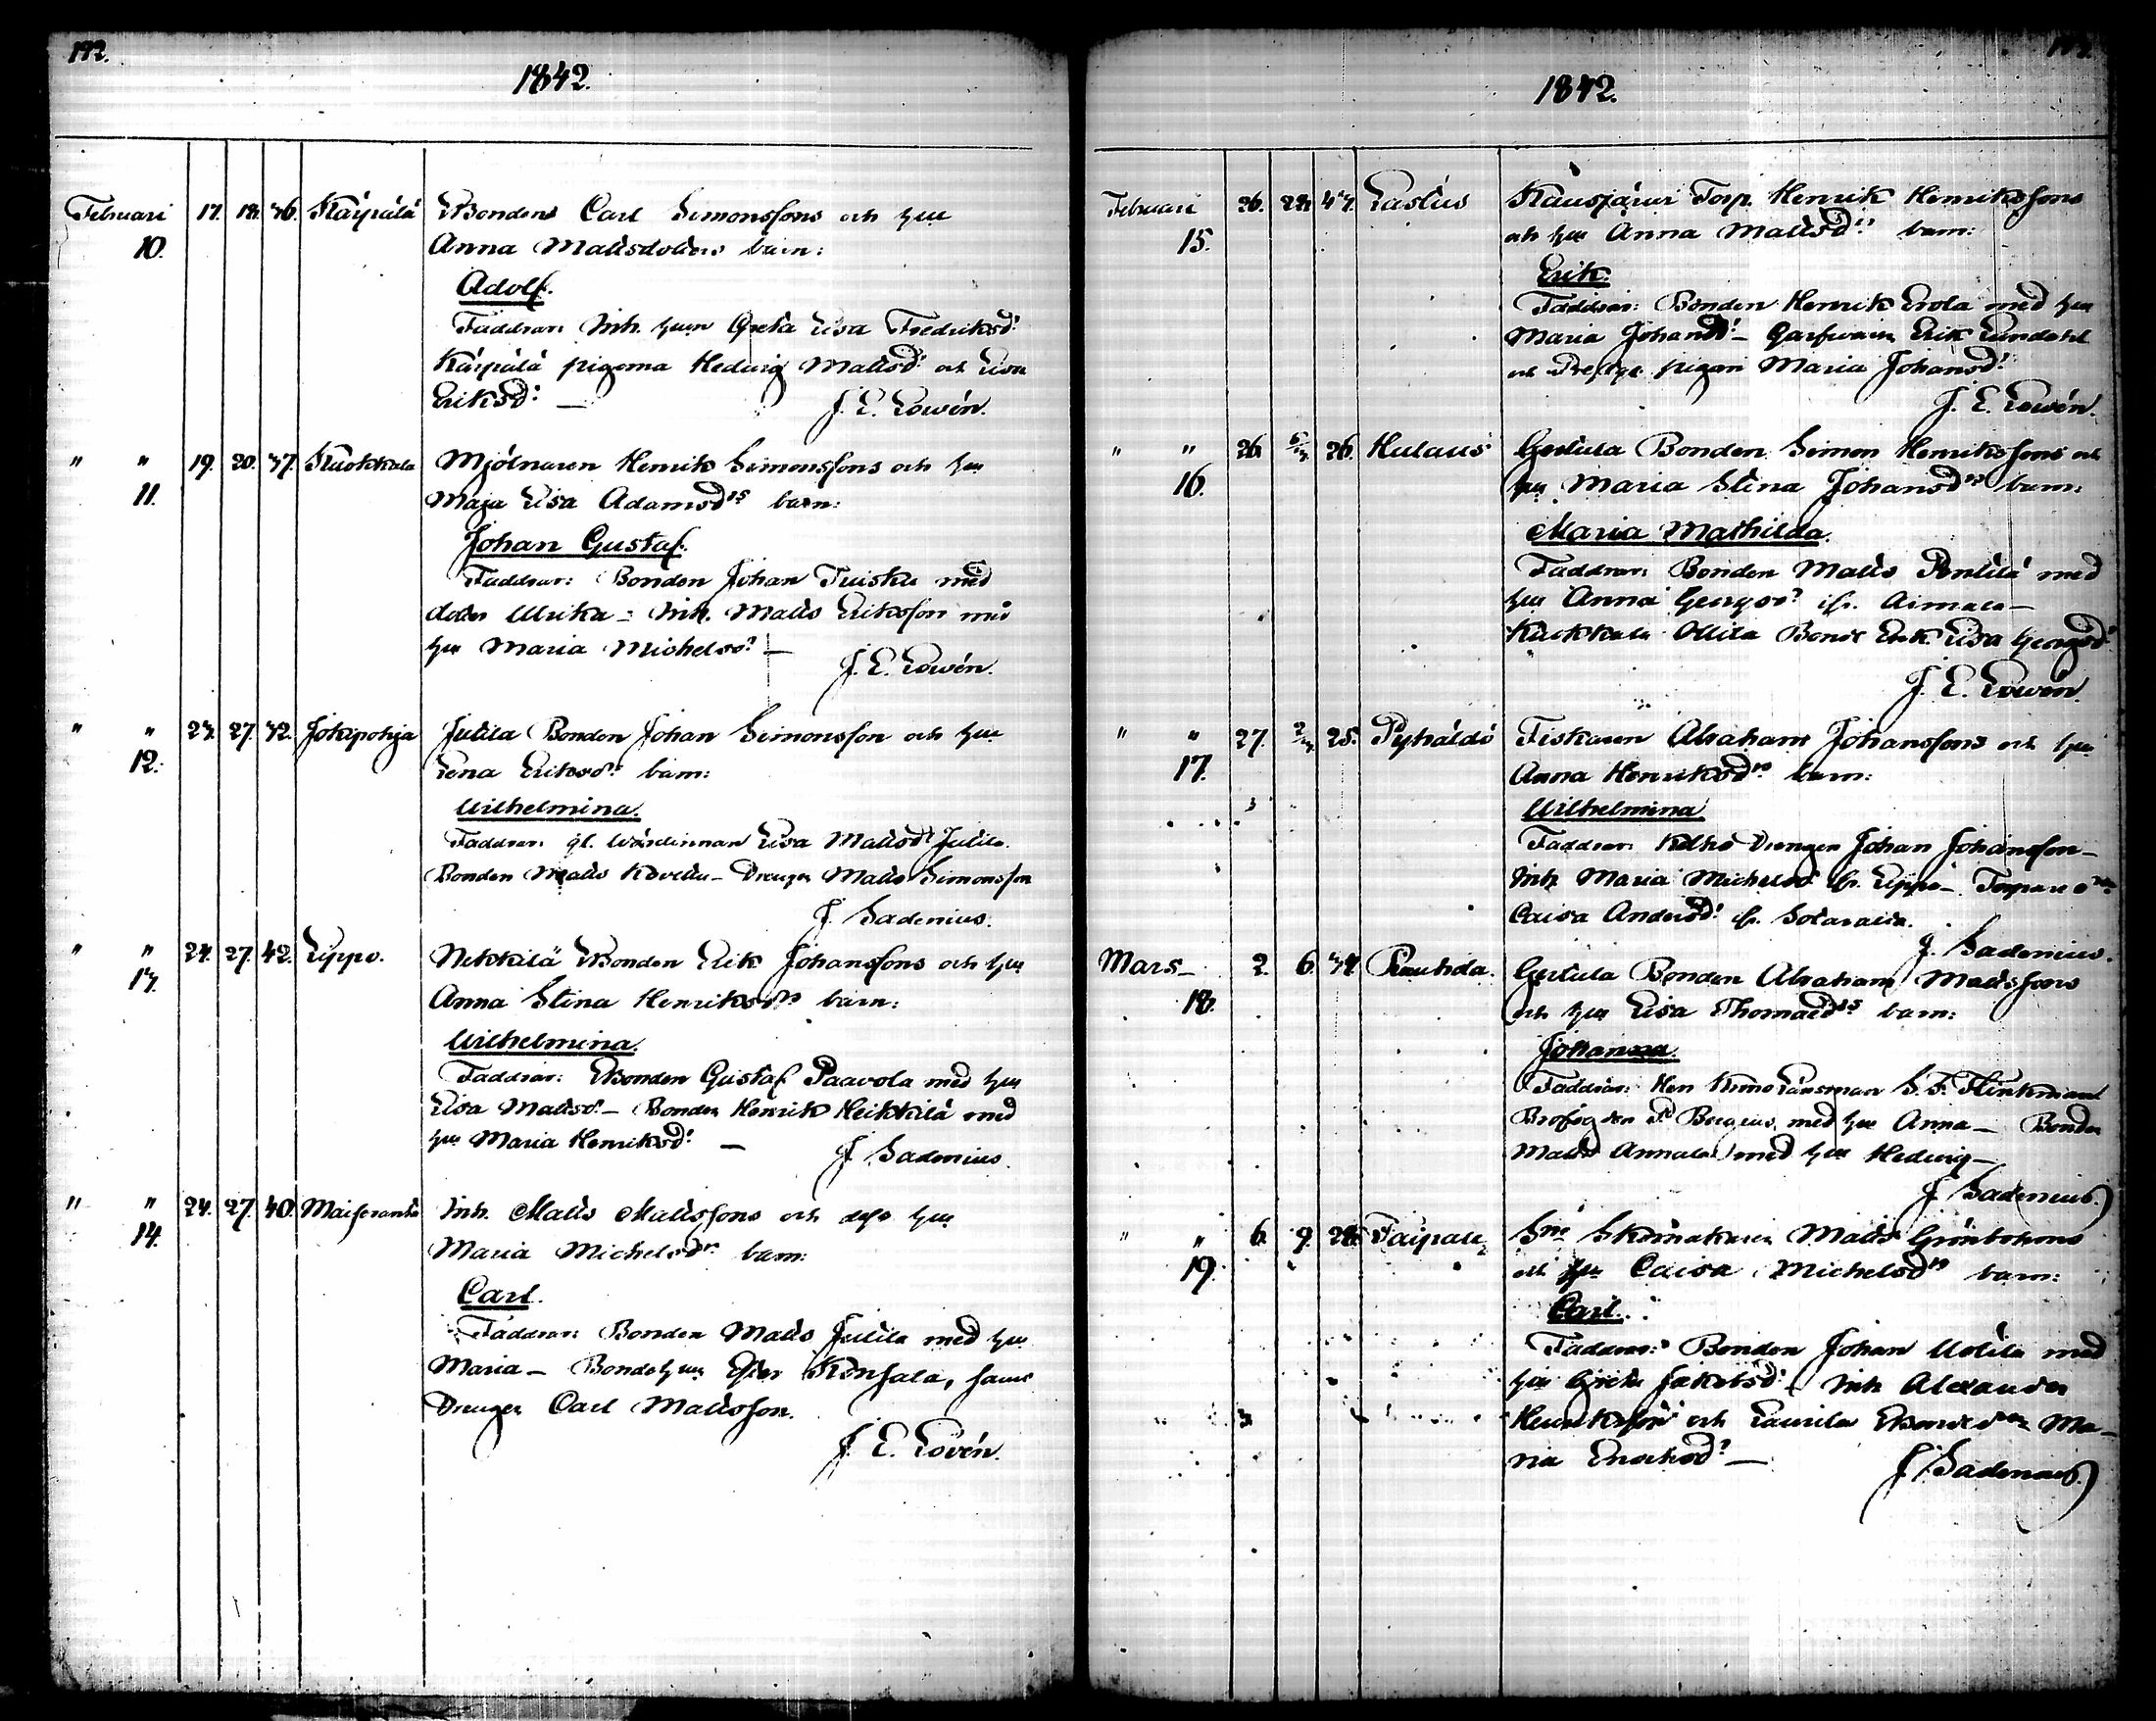 192.
1842.
Februari 17. 18. 36. Kärpälä Bondens Carl Simonssons och hu
10. Anna Matlsdotters barn:
Adolf.
Faddrar: Inh. hu Greta Lisa Fredriksd:
Kärpälä pigorna Hedvig Mattsd: och Lisa
Eriksd: —
J. E. Lowén.
" " 19. 20. 37. Kuokkala Mjölnaren Henrik Simonssons och hu
11. Maja Lisa Adamsdrs barn:
Johan Gustaf.
Faddrar: Bonden Johan Tuisku med
doter Ulrika – Inh. Matts Eriksson med
hu Maria Michelsd: —
J. E. Lowén.
" " 24. 27. 42. Jokipohja Jutila Bonden Johan Simonsson och hu
12. Lena Eriksd: barn:
Wilhelmina.
Faddrar: gl. Värdinnan Lisa Mattsd: Jutila.
Bonden Matts – Drengen Matts Simonsson
J. Sadenius.
" " 24. 27. 42. Lippo. Bonden Erik Johanssons och hu
13. Anna Stina Henriksdrs barn:
Wilhelmina.
Faddrar: Bonden Gustaf Paavola med hu
Lisa Mattsd: – Bonden Henrik Heikkilä med
hu Maria Henriksd: —
J. Sadenius.
" " 24. 27. 40. Inh. Matts Mattssons och dess hu
14. Maria Michelsdr: barn:
Carl.
Faddrar: Bonden Matts Jutila med hu
Maria – Bondehu Ester, samt
Drengen Carl Mattsson.
J. E. Lovén.
1842.
Februari 26. 28. 47. Lastus Torp. Henrik Henrikssons
15. och hu Anna Mattsdrs barn:
Erik.
Faddrar: Bonden Henrik Erola med hu
Maria Johansd: – Garfvaren Erik Lundahl
och pigan Maria Johansd:
J. E. Lowén.
" " 26. 26. Hulaus Bonden Simon Henrikssons och
16. hu Maria Stina Johansdrs barn:
Maria Mathilda.
Faddrar: Bonden Matts Penttilä med
hu Anna Georgsd: fr. Aimala –
Kuokkala Ollila Bonde Enk. Lisa Georgsd:
J. E. Lowén.
" " 27. 25. Pyhäldö Fiskaren Abraham Johanssons och hu
17. Anna Henriksdrs barn:
Wilhelmina
Faddrar: Drengen Johan Johansson –
Inh. Maria Michelsd: fr. Lippo –
Caisa Andersd: fr.
J. Sadenius.
Mars – 2. 6. Bonden Abraham Mattssons
18. och hu Lisa Thomasdrs barn:
Johanna.
Faddrar: Herr Krono Länsman
med hu Anna – Bonden
Matts Annala med hu Hedvig –
J. Sadenius.
" " 6. 9. 28. Taipale Skomakaren Matts Grönbohms
19. och hu Caisa Michelsdrs barn:
Carl.
Faddrar: Bonden Johan Uotila med
hu Greta Jakobsd: – Inh. Alexander
Henriksson och Laurila Ma-
ria Enochsd: —
J. Sadenius.